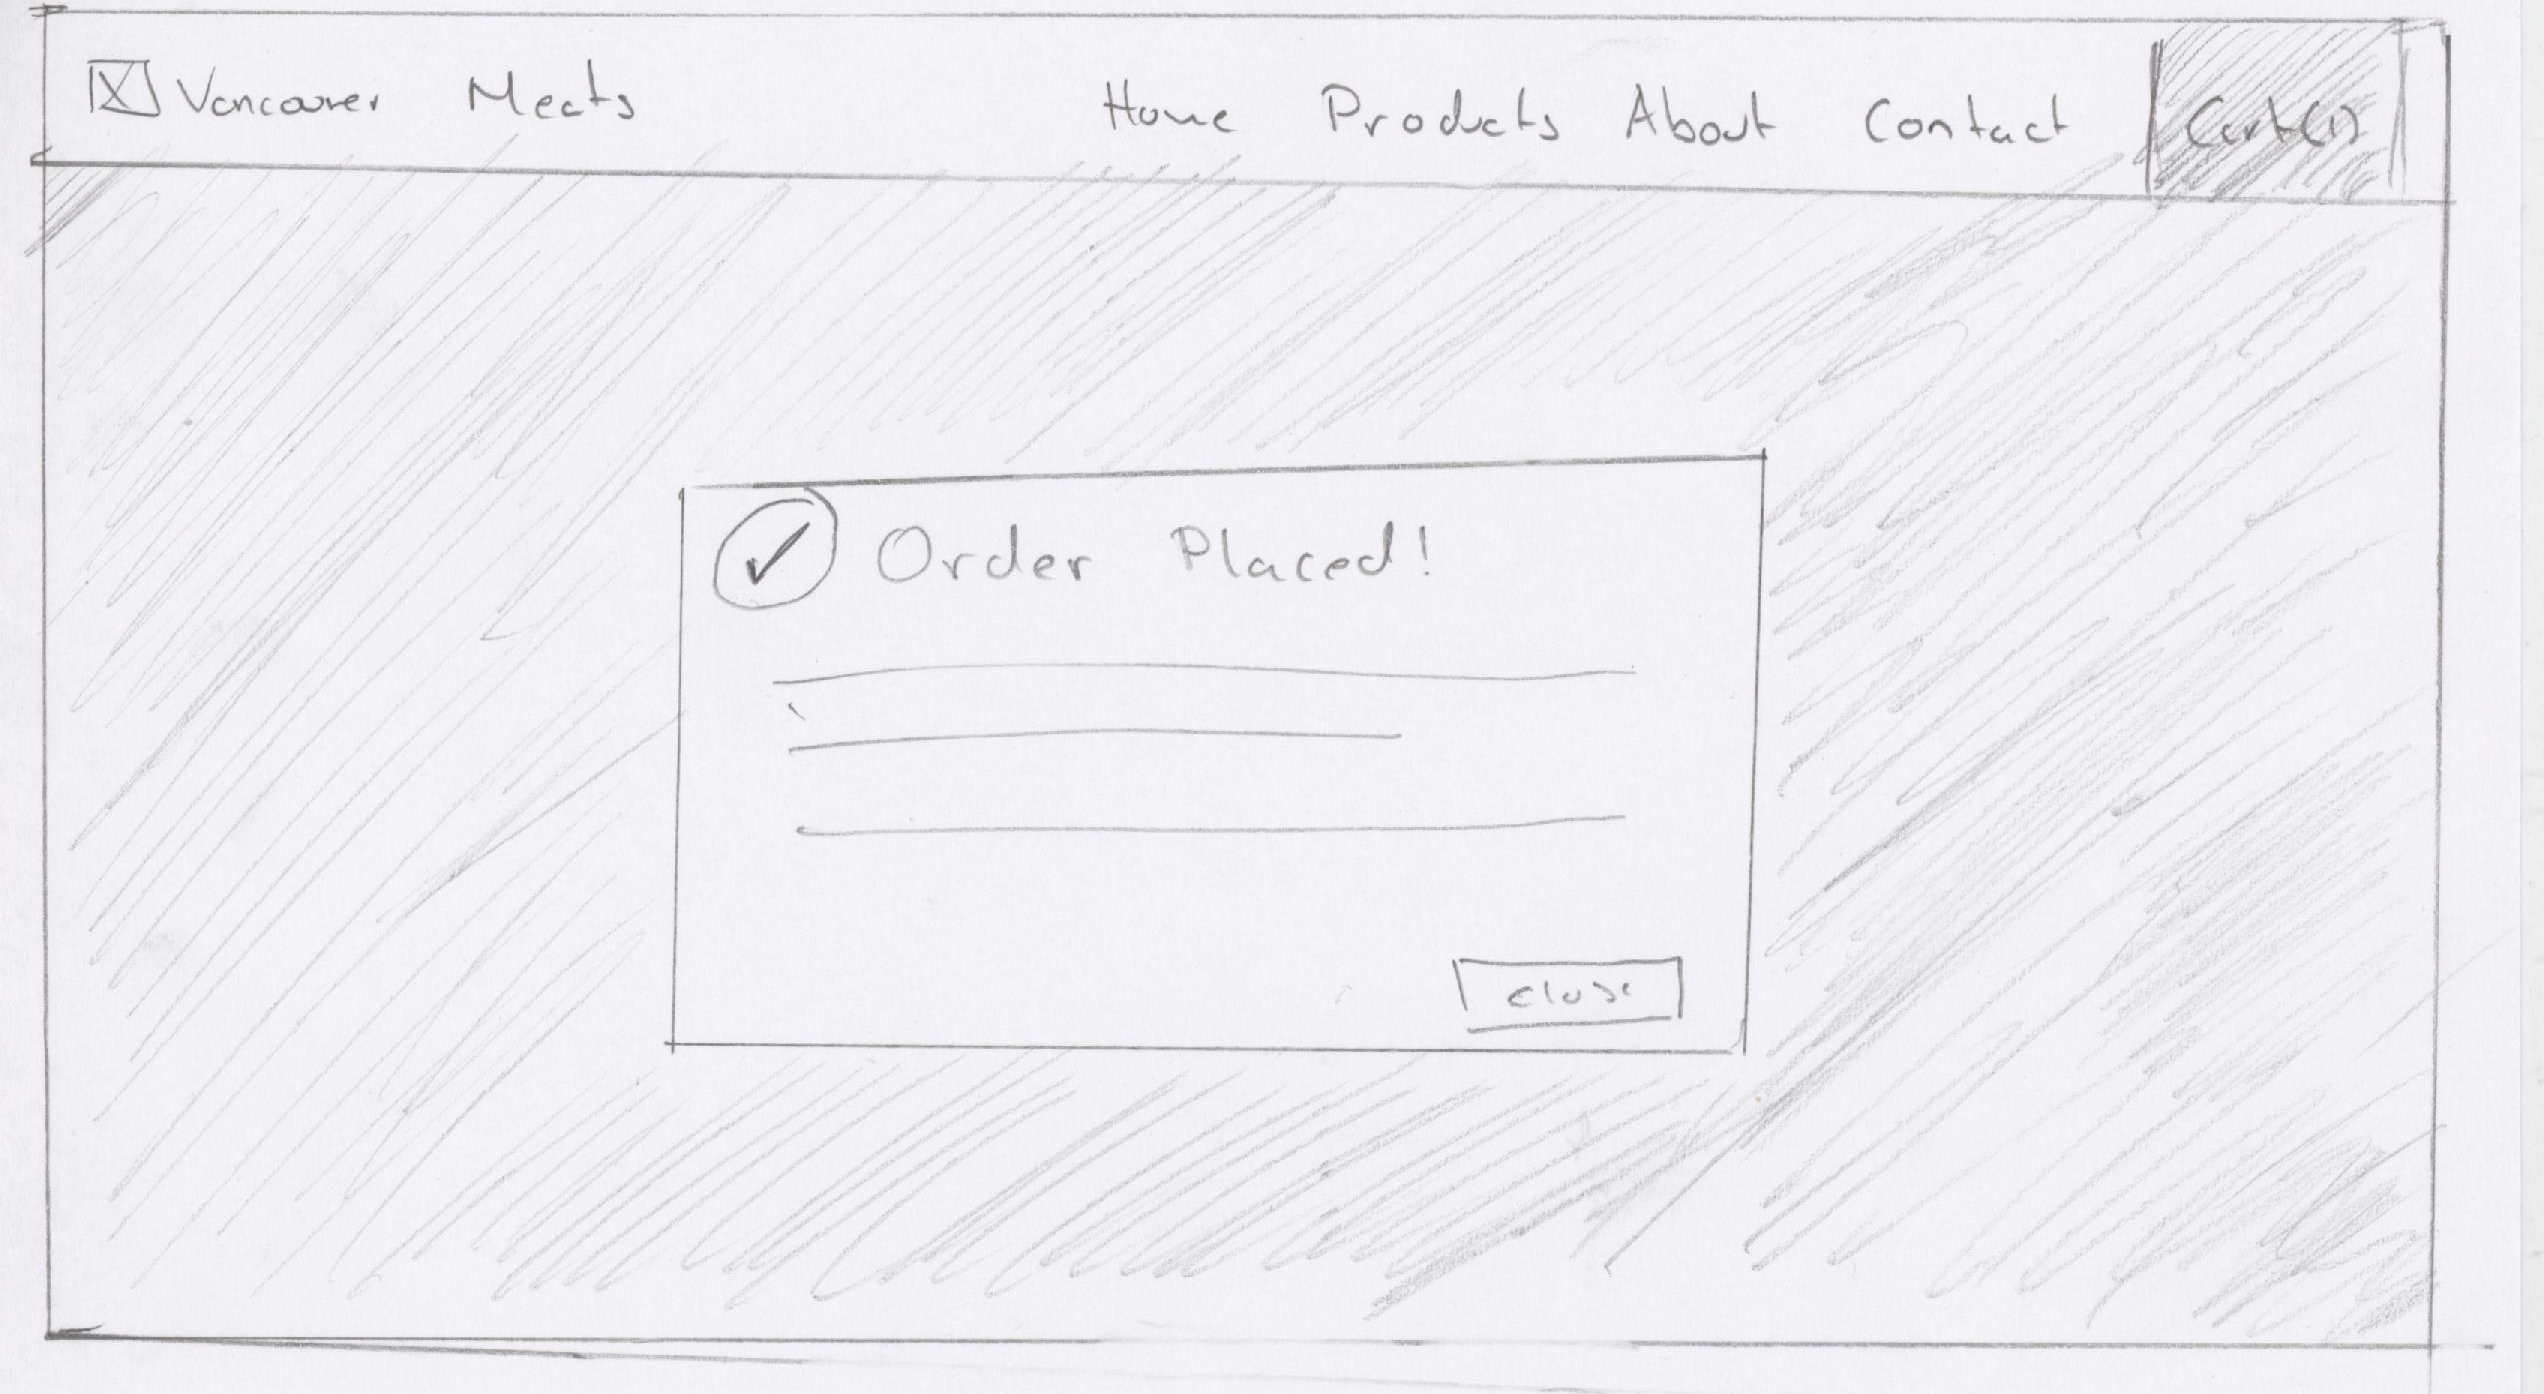 Vancouver Meats Home Products About Contact Cart(1)
Order Placed!
close